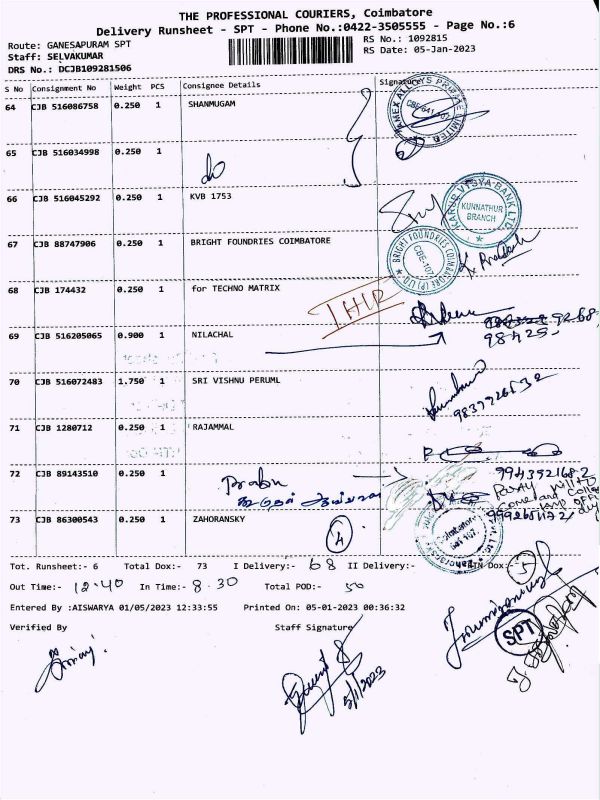 THE PROFESSIONAL COURIERS, Coimbatore
Delivery Runsheet - SPT - Phone No.:0422-3505555 - Page No.:6
Route: GANESAPURAM SPT
RS No.: 1092815
Staff: SELVAKUMAR
RS Date: 05-Jan-2023
DRS No.: DCJB109281506
S No Consignment No Weight PCS Consignee Details Signature
64 CJB 516086758 0.250 1 SHANMUGAM
CBE-641 107
65 CJB 516034998 0.250 1
do
66 CJB 516045292 0.250 1 KVB 1753
KARUR VYSYA BANK LTD.
KUNNATHUR
BRANCH
67 CJB 88747906 0.250 1 BRIGHT FOUNDRIES COIMBATORE
BRIGHT FOUNDRIES COIMBATORE (P) LTD
CBE-107
68 CJB 174432 0.250 1 for TECHNO MATRIX
69 CJB 516205065 0.900 1 NILACHAL
98425
70 CJB 516072483 1.750 1 SRI VISHNU PERUML
71 CJB 1280712 0.250 1 RAJAMMAL
72 CJB 89143510 0.250 1
Prabu
9943521682
73 CJB 86300543 0.250 1 ZAHORANSKY
4
Tot. Runsheet:- 6 Total Dox:- 73 I Delivery:- 68 II Delivery:- 5
Out Time:- 12.40 In Time:- 8.30 Total POD:- 50
Entered By :AISWARYA 01/05/2023 12:33:55 Printed On: 05-01-2023 00:36:32
Verified By Staff Signature
SPT
5/1/2023